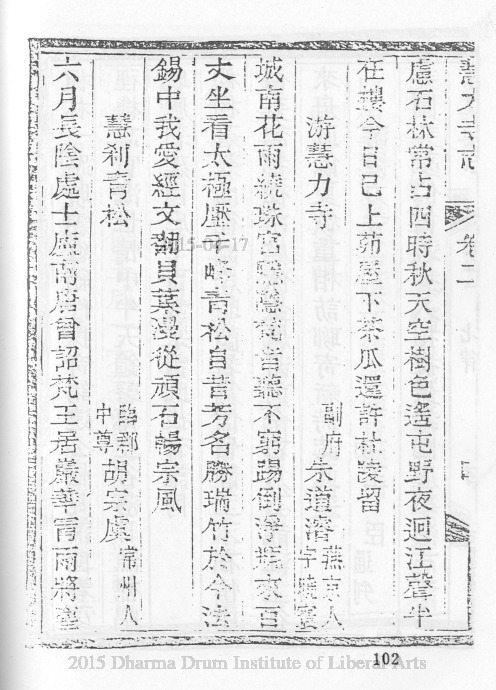 慧力寺志 卷二
慮石林常占四時秋天空樹色遙屯野夜迴江聲半
在樓今日已上茆壓下茶瓜還許杜陵留
游慧力寺 副府朱道濬燕京人字
城南花雨繞珠宮梵音聽不窮踢倒淨瓶來百
丈坐看太極壓千峰青松自昔芳名勝瑞竹於今法
錫中我愛經文翻貝葉漫從頑石暢宗風
慧刹青松 臨郡中尊胡宗虞常州人
六月長陰處士廬南唐曾詔梵王居巖華青雨將
2015-04-17
102
2015 Dharma Drum Institute of Liberal Arts